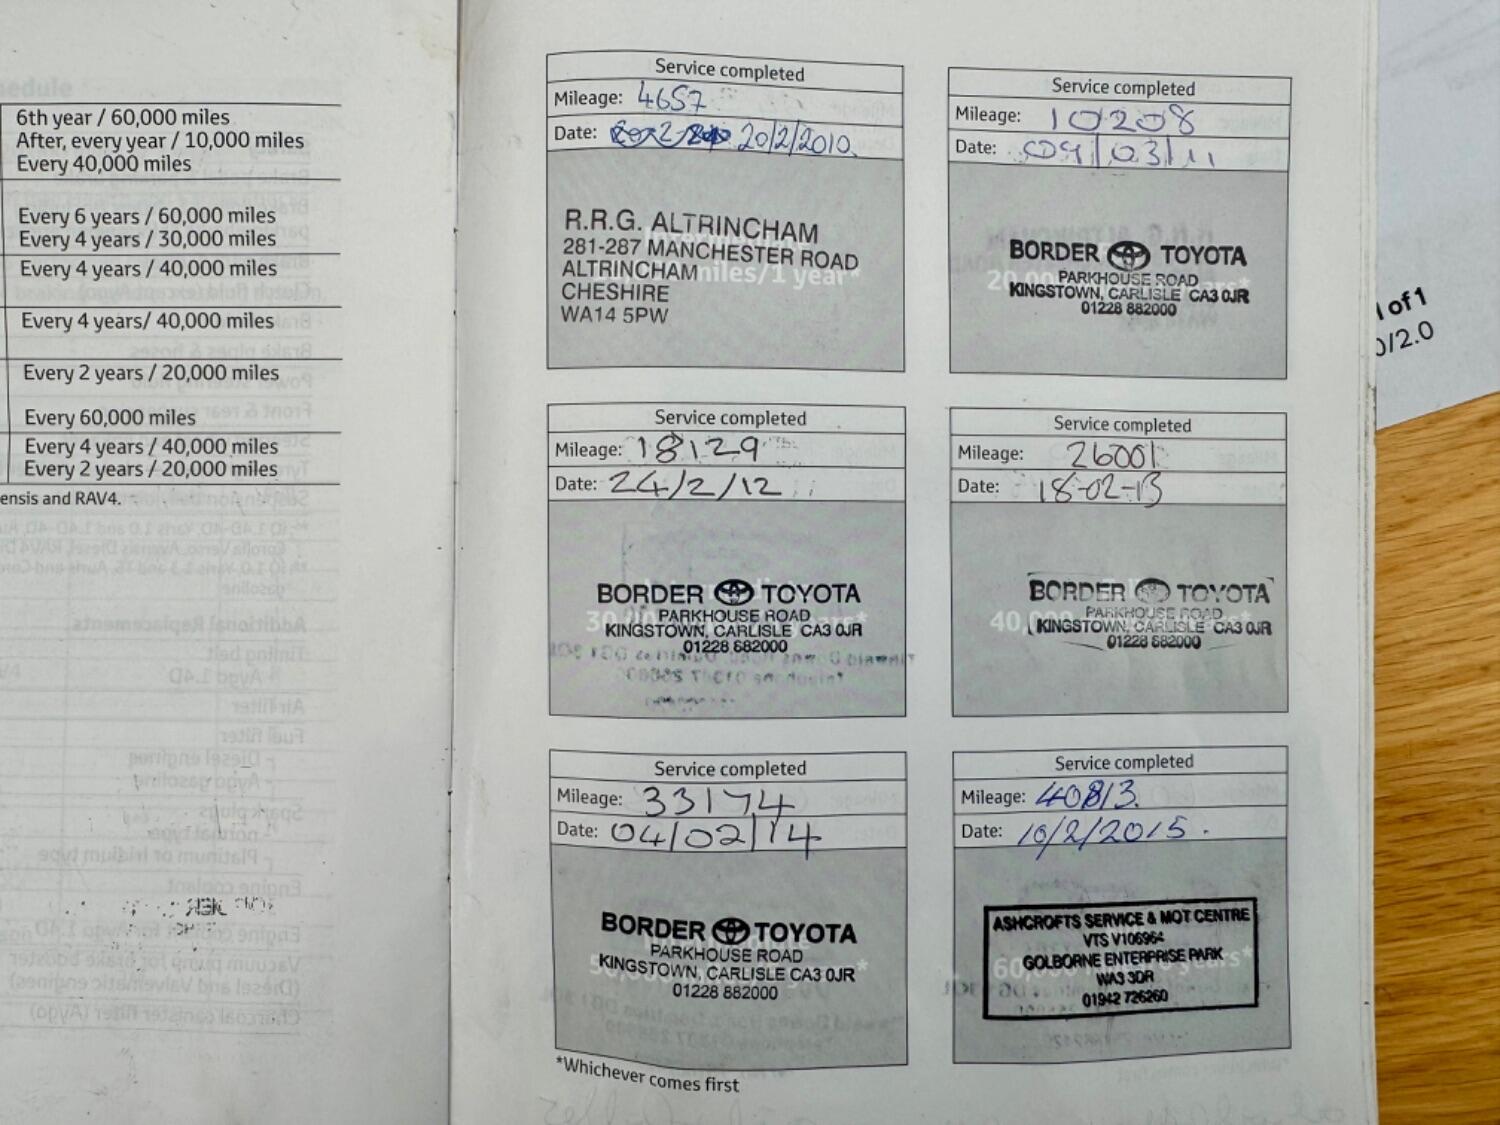 edule
6th year / 60,000 miles
After, every year / 10,000 miles
Every 40,000 miles
Every 6 years / 60,000 miles
Every 4 years / 30,000 miles
Every 4 years / 40,000 miles
Every 4 years/ 40,000 miles
Every 2 years / 20,000 miles
Every 60,000 miles
Every 4 years / 40,000 miles
Every 2 years / 20,000 miles
ensis and RAV4.
Service completed
Mileage: 4657
Date: 20/2/2010.
R.R.G. ALTRINCHAM
281-287 MANCHESTER ROAD
ALTRINCHAM
CHESHIRE
WA14 5PW
miles/1 year*
Service completed
Mileage: 10208
Date: 09/03/11
BORDER TOYOTA
PARKHOUSE ROAD
KINGSTOWN, CARLISLE CA3 0JR
01228 882000
Service completed
Mileage: 18129
Date: 24/2/12
BORDER TOYOTA
PARKHOUSE ROAD
KINGSTOWN, CARLISLE CA3 0JR
01228 882000
Service completed
Mileage: 26001
Date: 18-02-13
BORDER TOYOTA
PARKHOUSE ROAD
KINGSTOWN, CARLISLE CA3 0JR
01228 882000
Service completed
Mileage: 33174
Date: 04/02/14
BORDER TOYOTA
PARKHOUSE ROAD
KINGSTOWN, CARLISLE CA3 0JR
01228 882000
Service completed
Mileage: 40813.
Date: 10/2/2015.
ASHCROFTS SERVICE & MOT CENTRE
VTS V106964
GOLBORNE ENTERPRISE PARK
WA3 3DR
01942 726260
*Whichever comes first
1 of 1
0/2.0